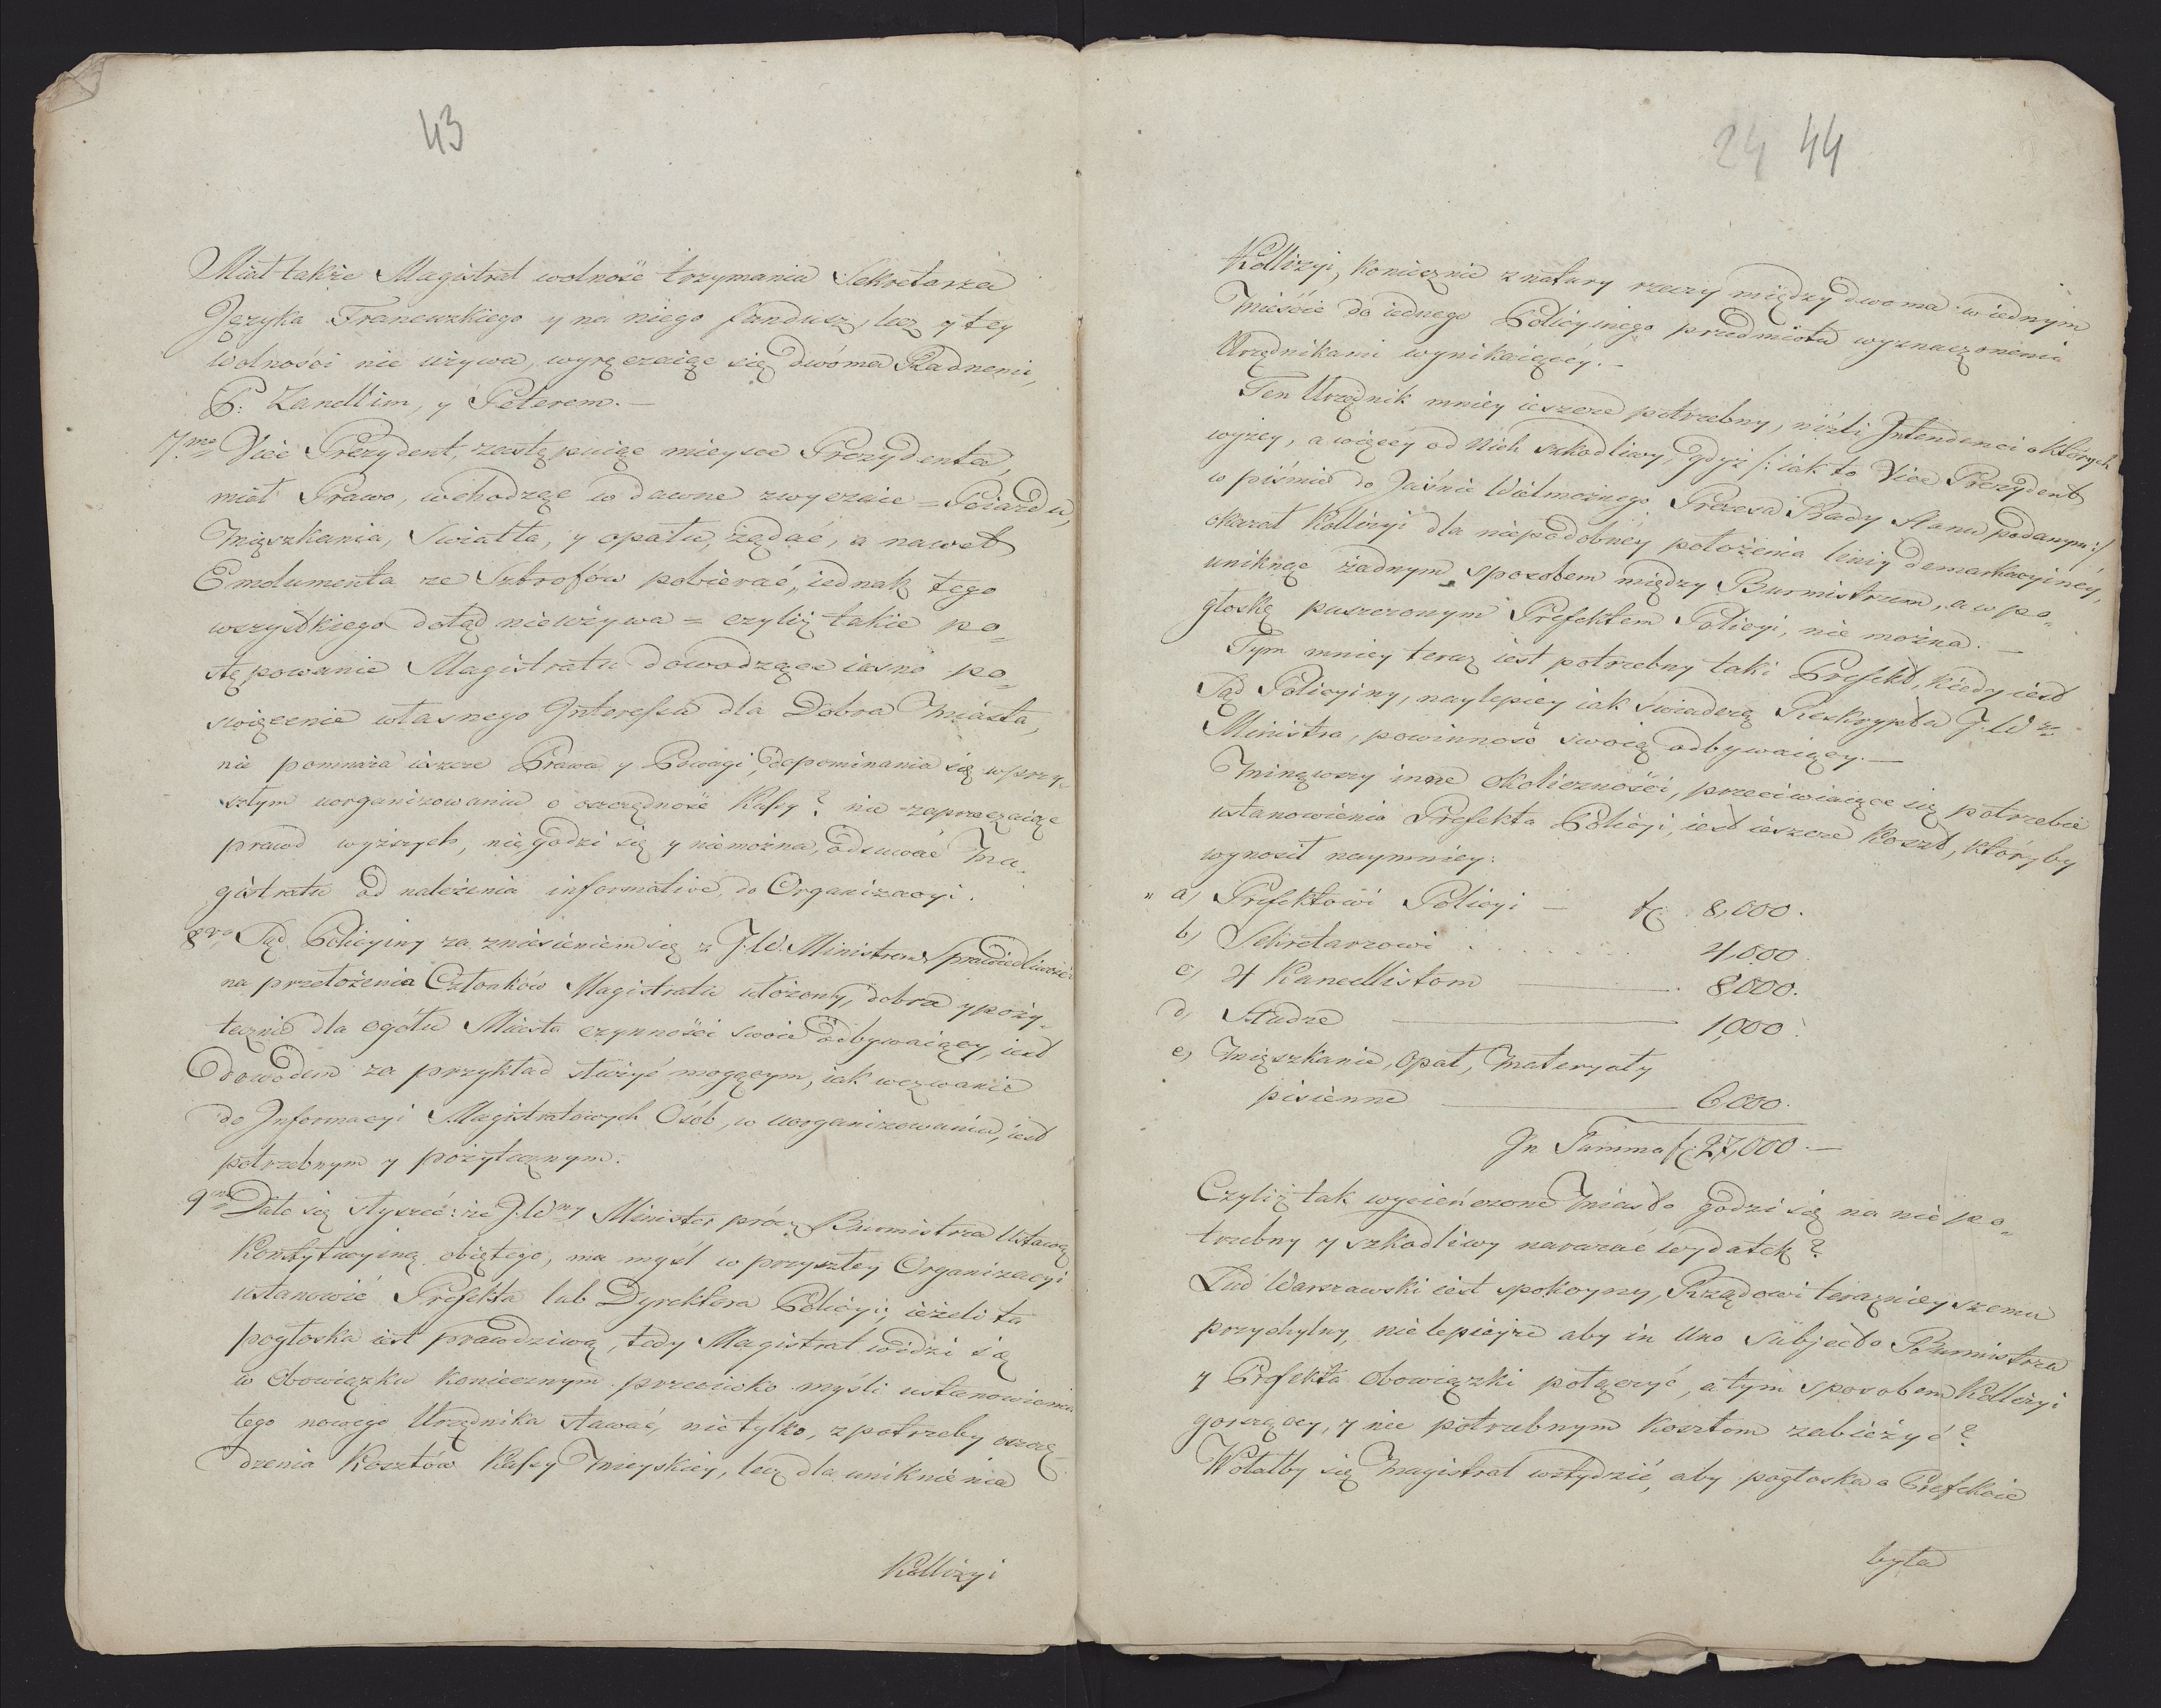 43
Miał także Magistrat wolność trzymania Sekretarza
Języka Francuzkiego y na niego fundusz, lecz y tey
wolności nie używa, wyręczaiąc się dwóma Radnemi,
P: Zanellim, y Peterem. —
7mo Vice Prezydent, zastępuiąc mieysce Prezydenta,
miał Prawo, wchodząc w dawne zwyczaie = Poiazdu,
Mięszkania, Swiatła, y opału, żądać, a nawet
Emolumenta ze Sztrofów pobierać, iednak tego
wszystkiego dotąd nieużywa = czyliż takie po„
stępowanie Magistratu dowodzące iasno po„
swięcenie własnego Interessu dla Dobra Miasta,
nie pomnaża ieszcze Prawa y Powagi, dopominania się w przy„
szłym uorganizowaniu o oszczędność Kassy? nie zaprzeczaiąc
prawd wyższych, niegodzi się y niemożna, odsuwać Ma„
gistratu od należenia informative do Organizacyi.
8vo Sąd Policyiny za zniesieniem się z J.W. Ministrem Sprawiedliwości
na przełożenia Członków Magistratu ułożony, dobra y poży„
tecznie dla ogółu Miasta czynności swoie odbywaiący, iest
dowodem za przykład służyć mogącym, iak wezwanie
do Informacyi Magistratowych Osób, w uorganizowaniu, iest
potrzebnym y pożytecznym.
9no Dało się słyszeć: że J.Wny Minister prócz Burmistrza Ustawą
Konstytucyiną obiętego, ma myśl w przyszłey Organizacyi
ustanowić Prefekta lub Dyrektora Policyi; ieżeli ta
pogłoska iest prawdziwą, tedy Magistrat widzi się
w Obowiązku koniecznym przeciwko myśli ustanowienia
tego nowego Urzędnika stawać, nie tylko, z potrzeby oszczę„
dzenia Kosztów Kassy Mieyskiey, lecz dla uniknienia
Kollizyi
24 44
Kollizyi, koniecznie z natury rzeczy między dwoma w iednym
Mieście do iednego Policyinego przedmiotu wyznaczonemi
Urzędnikami wynikaiącey. —
Ten Urzędnik mniey ieszcze potrzebny, niźli Intendenci o których
wyżey, a więcey od nich szkodliwy, gdyż /: iak to Vice Prezydent
w piśmie do Jaśnie Wielmożnego Prezesa Rady Stanu podanym :/
okazał Kollizyi dla niepodobney położenia linij demarkacyiney,
uniknąć żadnym sposobem między Burmistrzem, a w po„
głoskę puszczonym Prefektem Policyi, nie można. —
Tym mniey teraz iest potrzebny taki Prefekt, kiedy iest
Sąd Policyiny, naylepiey iak świadczą Reskrypta J.W.
Ministra, powinność swoią odbywaiący. —
Minąwszy inne okoliczności, przeciwiaiące się potrzebie
ustanowienia Prefekta Policyi, iest ieszcze Koszt, któryby
wynosił naymniey:
a) Prefektowi Policyi — f. 8,000.
b) Sekretarzowi . . . . . . 4,000.
c) 4 Kancellistom — 8000.
d) Studze — 1,000.
e) Mięszkanie, Opał, Materyały
pisienne — 6000.
In Summa f. 27,000. —
Czyliż tak wycieńczone Miasto godzi się na niepo„
trzebny y szkodliwy narażać wydatek?
Lud Warszawski iest spokoyny, Rządowi teraznieyszemu
przychylny, nie lepieyże aby in Uno Subjecto Burmistrza
y Prefekta Obowiązki połączyć, a tym sposobem Kollizyi
gorszącey, y nie potrzebnym kosztom zabieżyć?
Wolałby się Magistrat wstydzić, aby pogłoska o Prefekcie
była